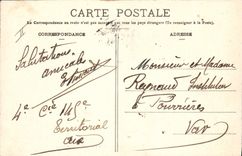 CARTE POSTALE
La Correspondance au recto n'est pas acceptée par tous les pays étrangers (Se renseigner à la Poste).
CORRESPONDANCE
ADRESSE
II
Salutations
amicales
4e Cie 145e
Territorial
Aix
Monsieur et Madame
Raynaud Instituteur
à Pourrières
Var